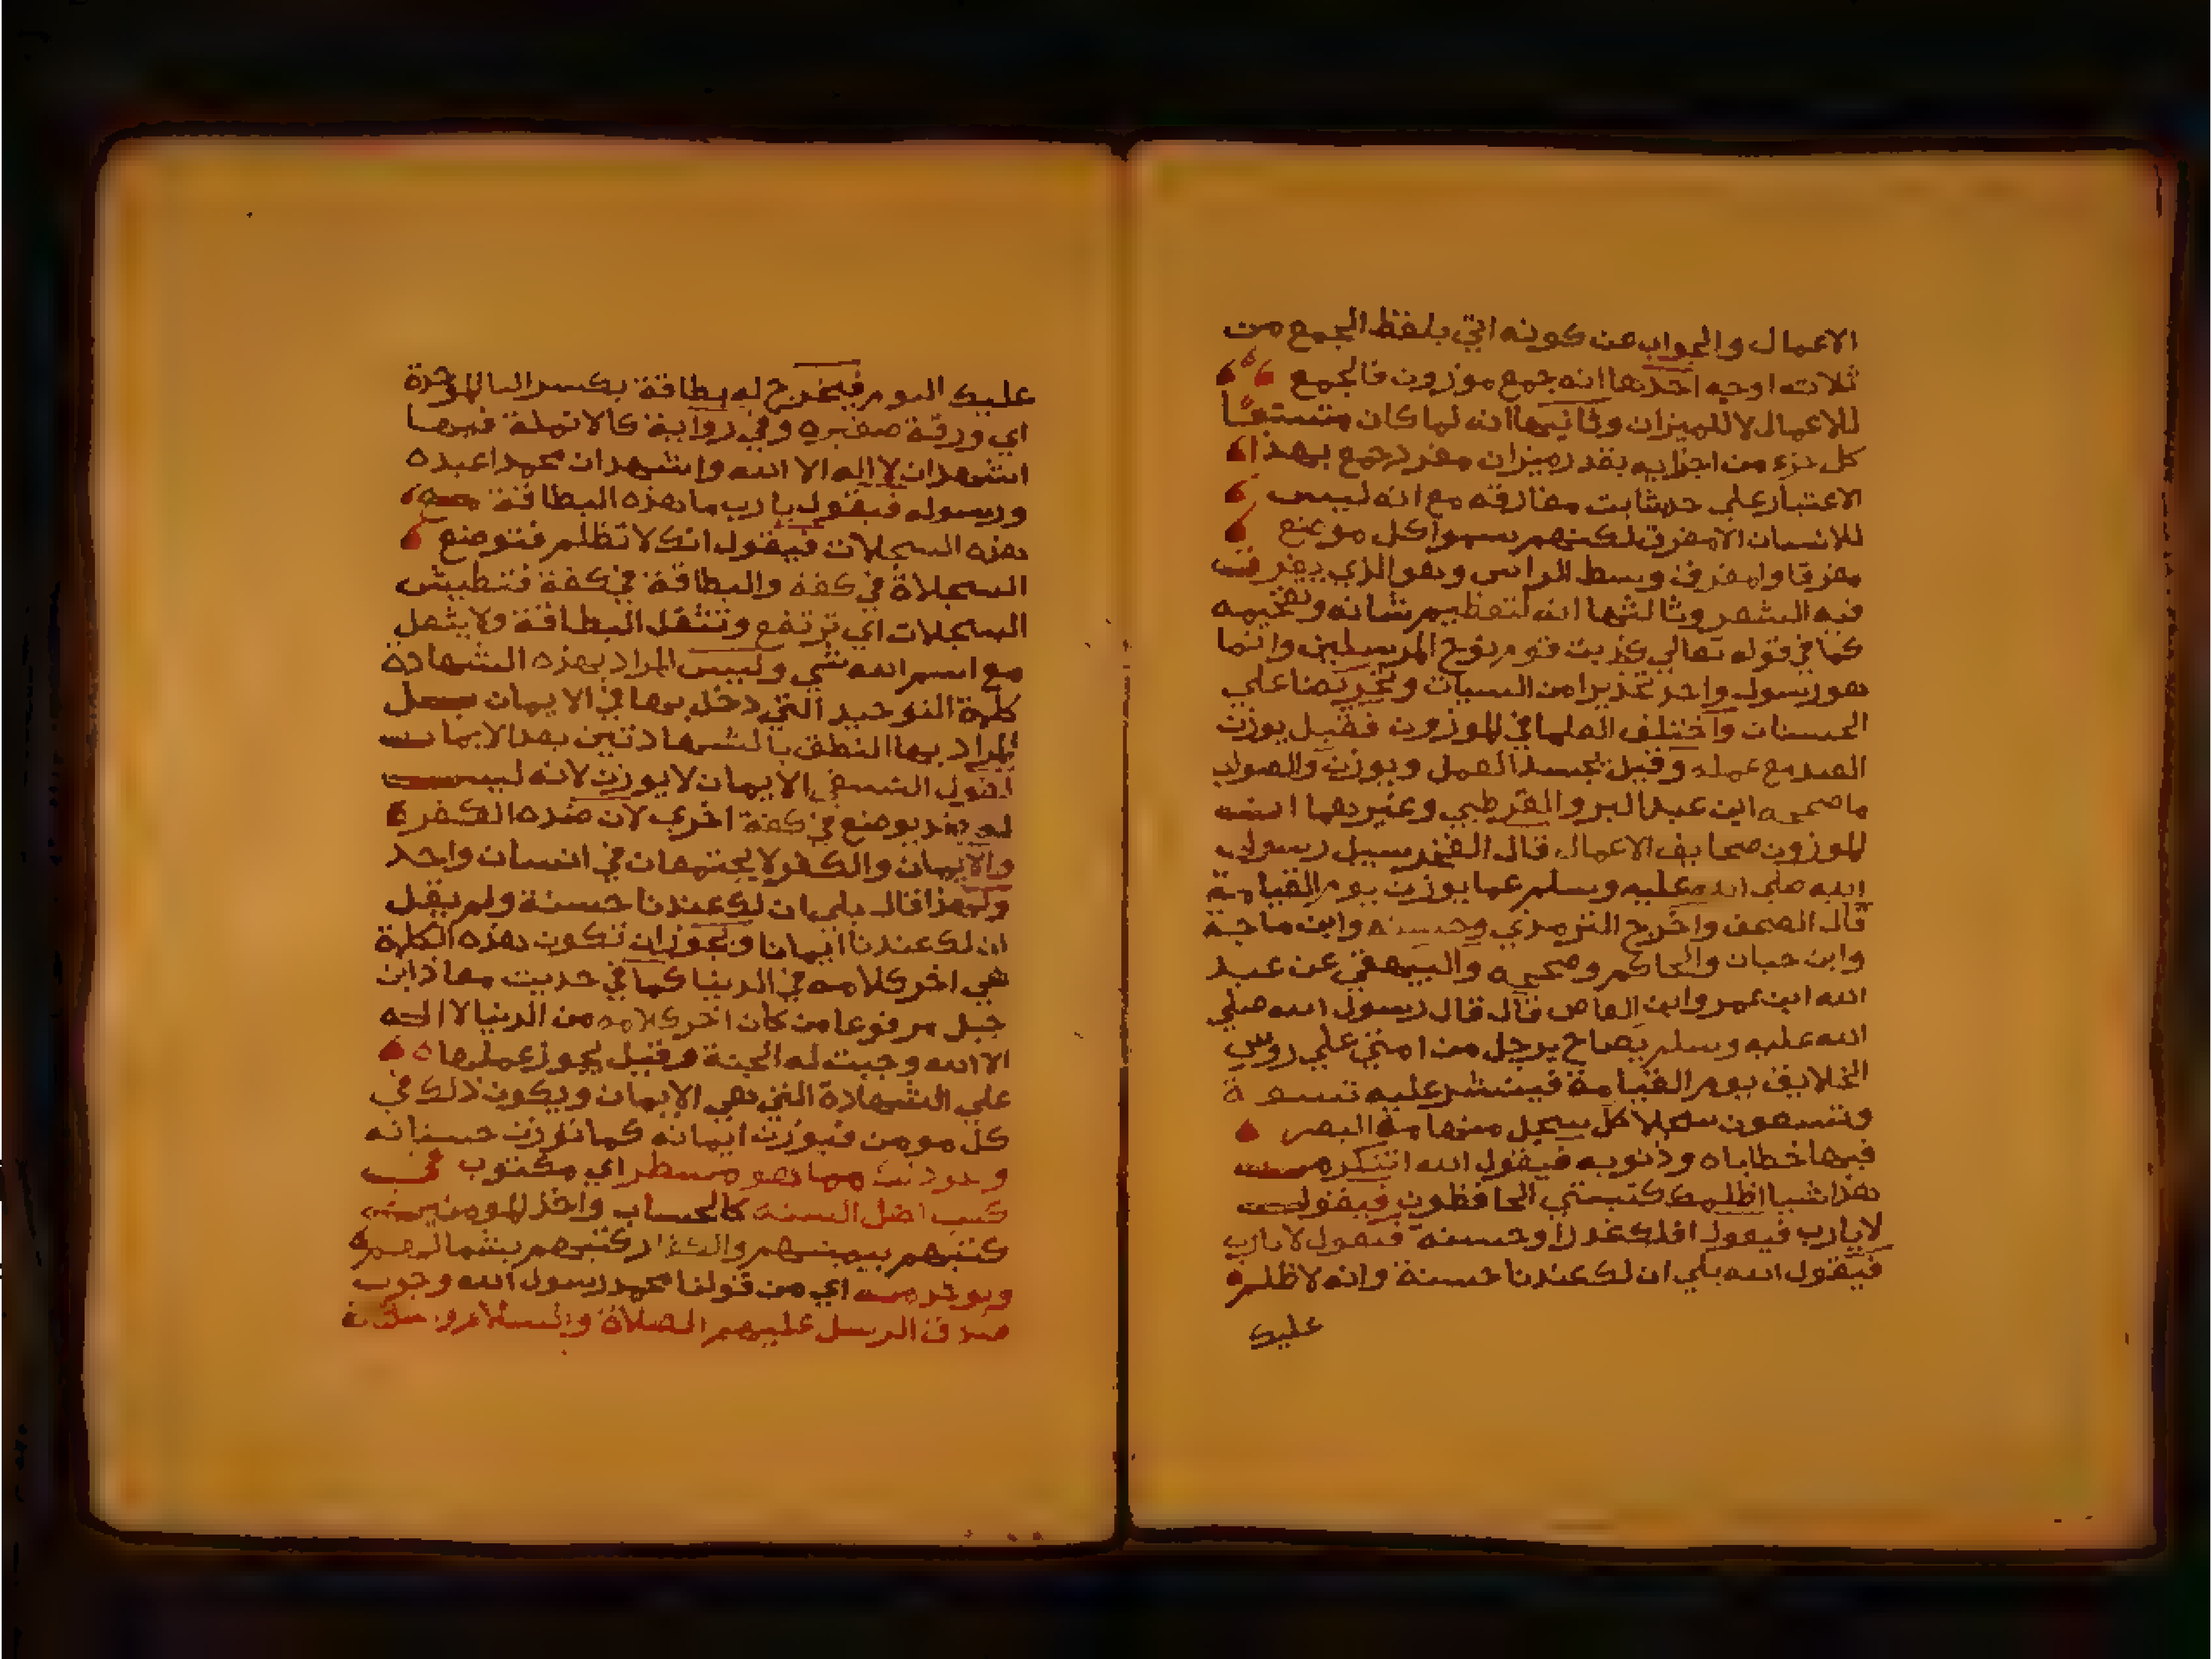 الاعمال والجواب عن كونه اتي بلفظ الجمع من
ثلاث اوجه احدها انه جمع موزون فالجمع
للاعمال لا للميزان وثانيها انه لما كان
كل جزء من اجزايه بقدر ميزان مفرد جمع بهذا
الاعتبار علي حد شابت مفارقه مع انه ليس
للانسان الا مفرق لكنهم سموا كل موضع
مفرقا وامفرق وسط الراس وهو الذي يفرق
فيه الشعر وثالثها انه لتعظيم شانه وتفخيمه
كما في قوله تعالي كذبت قوم نوح المرسلين وانما
هو رسول واحد تحذيرا من السيات وتحريضا علي
الحسنات واختلف العلما في الموزون فقيل يوزن
العبد مع عمله وقيل تجسد العمل ويوزن والصواب
ما صححه ابن عبد البر والقرطبي وغيرهما انه
الموزون صحايف الاعمال قال الفخر سيل رسول
الله صلي الله عليه وسلم عما يوزن يوم القيامة
قال الصحف واخرج الترمذي وحسنه وابن ماجة
وابن حبان والحاكم وصححه والبيهقي عن عبد
الله ابن عمر وابن العاص قال قال رسول الله صلي
الله عليه وسلم يصاح برجل من امتي علي روس
الخلايق يوم القيامة فينشر عليه تسعة
وتسعون سجلا كل سجل منها مد البصر
فيها خطاياه وذنوبه فيقول الله اتنكر من
هذا شيا اظلمك كتبتي الحافظون فيقول
لا يارب فيقول افلك عذرا وحسنة فيقول لا يارب
فيقول الله بلي ان لك عندنا حسنة وانه لا ظلم
عليك
عليك اليوم فيخرج له بطاقة بكسر البا الموحدة
اي ورقة صغيره وفي رواية كالانملة فيها
اشهد ان لا اله الا الله واشهد ان محمدا عبده
ورسوله فيقول يارب ما هذه البطاقة مع
هذه السجلات فيقول انك لا تظلم فتوضع
السجلاة في كفة والبطاقة في كفة فتطيش
السجلات اي ترتفع وتثقل البطاقة ولا يثقل
مع اسم الله شي وليس المراد بهذه الشهادة
كلمة التوحيد التي دخل بها في الايمان بل
المراد بها النطق بالشهادتين بعد الايمان
لقول النسفي الايمان لا يوزن لانه ليس
له ضد يوضع في كفة اخري لان ضده الكفر
والايمان والكفر لا يجتمعان في انسان واحد
ولهذا قال بلي ان لك عندنا حسنة ولم يقل
ان لك عندنا ايمانا ويجوز ان تكون هذه الكلمة
هي اخر كلامه في الدنيا كما في حديث معاذ ابن
جبل مرفوعا من كان اخر كلامه من الدنيا لا اله
الا الله وجبت له الجنة وقيل يجوز عملها
علي الشهادة التي هي الايمان ويكون ذلك في
كل مومن فيوزن ايمانه كما توزن حسناته
مما هو مسطر اي مكتوب في
كتب اهل السنة كالحساب واخذ المومنين
كتبهم بيمينهم والكفار كتبهم بشمالهم
ويوخذ منه اي من قولنا محمد رسول الله وجوب
صدق الرسل عليهم الصلاة والسلام